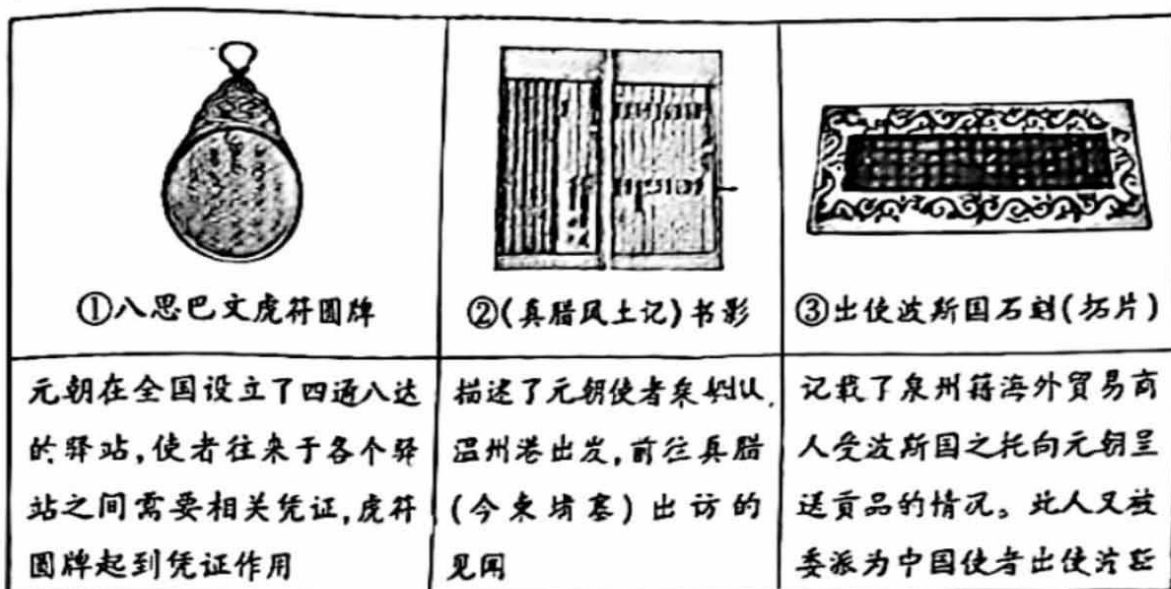 ①八思巴文虎符圆牌
②(真腊风土记)书影
③出使波斯国石刻(拓片)
元朝在全国设立了四通八达
的驿站,使者往来于各个驿
站之间需要相关凭证,虎符
圆牌起到凭证作用
描述了元朝使者乘船从
温州港出发,前往真腊
(今柬埔寨)出访的
见闻
记载了泉州籍海外贸易商
人受波斯国之托向元朝呈
送贡品的情况。此人又被
委派为中国使者出使波斯